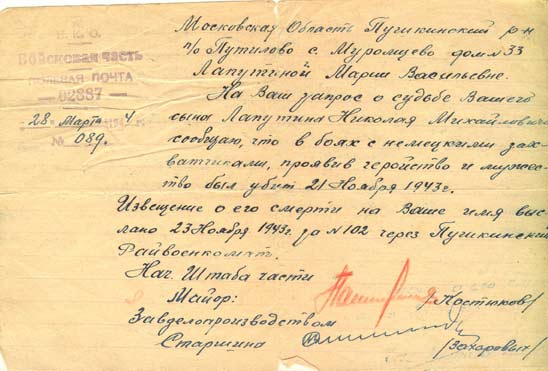 Н.К.О.
Войсковая часть
ПОЛЕВАЯ ПОЧТА
02887
28 Марта 4
№ 089.
Московская Область Пушкинский р-н
п/о Путилово с. Муромцево дом N 33
Лапутиной Марии Васильевне.
На Ваш запрос о судьбе Вашего
сына Лапутина Николая Михайлович
сообщаю, что в боях с немецкими зах-
ватчиками, проявив геройство и мужес-
тво был убит 21 Ноября 1943 г.
Извещение о его смерти на Ваше имя выс-
лано 23 Ноября 1943 г. за N 102 через Пушкинский
Райвоенкомат.
Нач. Штаба части
Майор: /Костюков/
Завделопроизводством
Старшина /Захаровых/